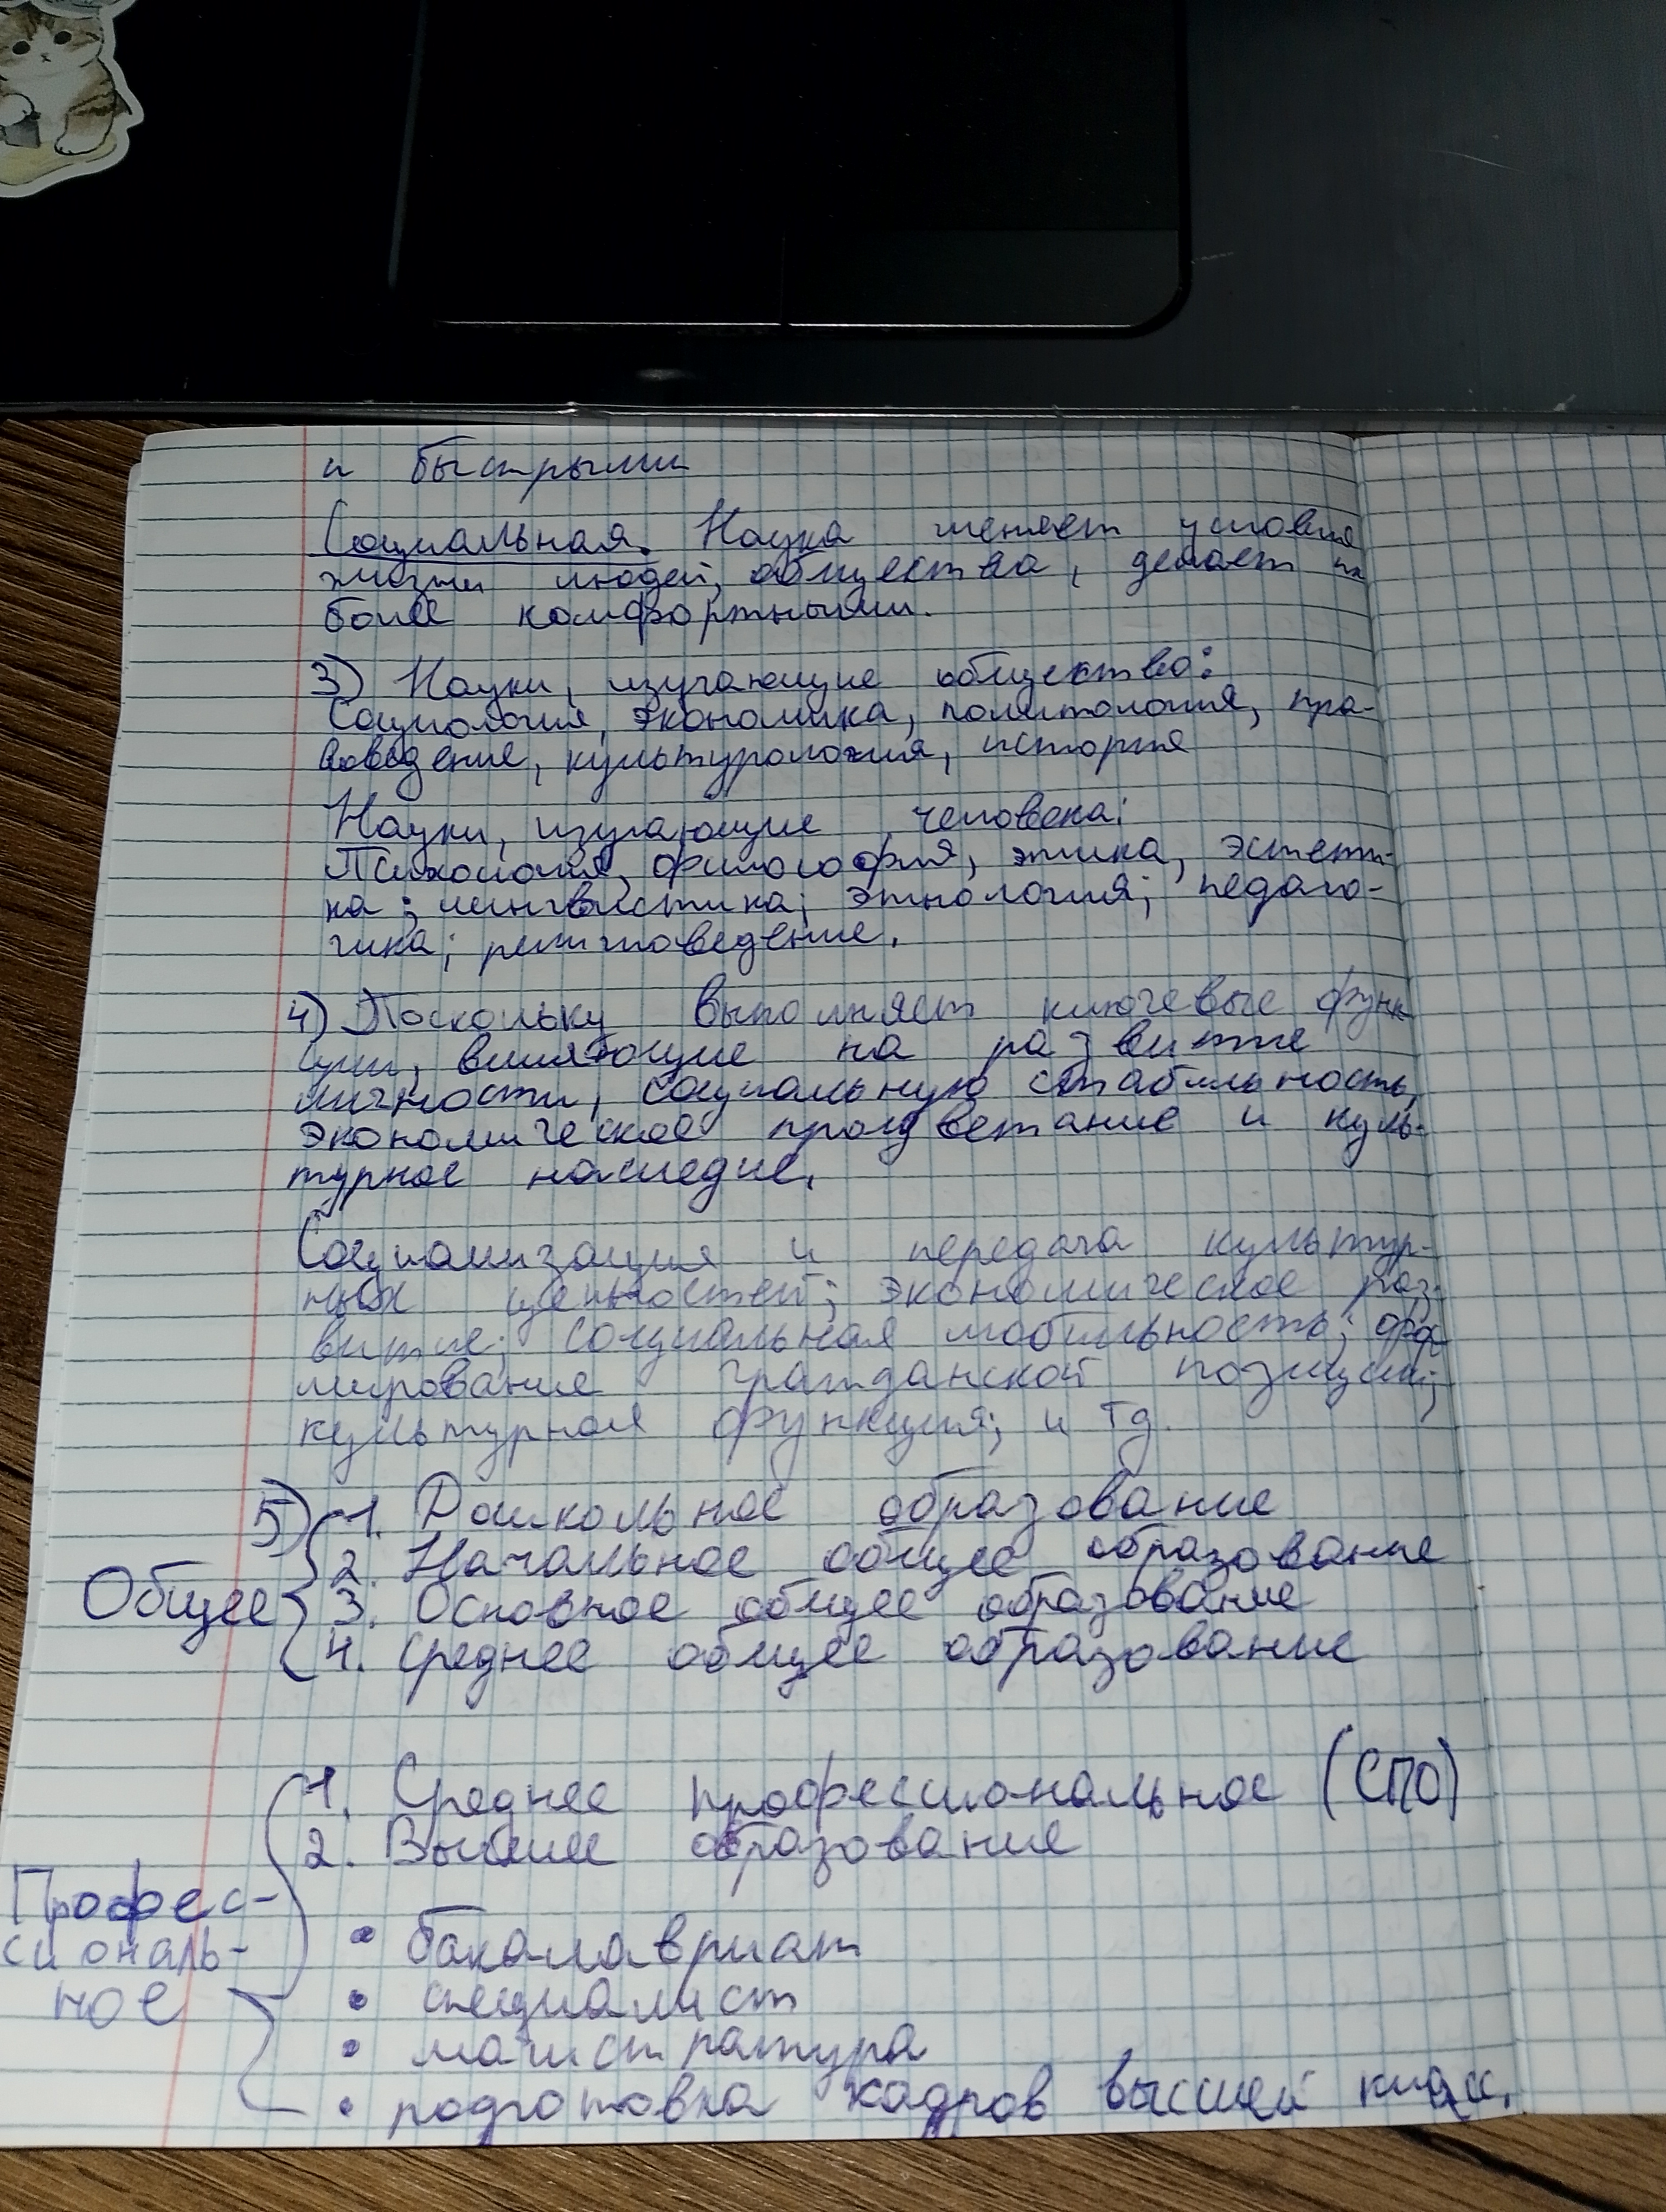 и быстрыми
Социальная. Наука меняет условия
жизни людей, общества, делает их
более комфортными.
3) Науки, изучающие общество:
Социология, экономика, политология, пра-
воведение, культурология, история
Науки, изучающие человека:
Психология, философия, этика, эстети-
ка; лингвистика; этнология; педаго-
гика; религиоведение.
4) Поскольку выполняет ключевые функ
ции, влияющие на развитие
личности, социальную стабильность,
экономическое процветание и куль-
турное наследие.
Социализация и передача культур-
ных ценностей; экономическое раз-
витие; социальная мобильность; фор
мирование гражданской позиции;
культурная функция; и тд.
5) 1. Дошкольное образование
2. Начальное общее образование
Общее 3. Основное общее образование
4. Среднее общее образование
1. Среднее профессиональное (СПО)
2. Высшее образование
Профес-
сиональ-
ное
• бакалавриат
• специалист
• магистратура
• подготовка кадров высшей